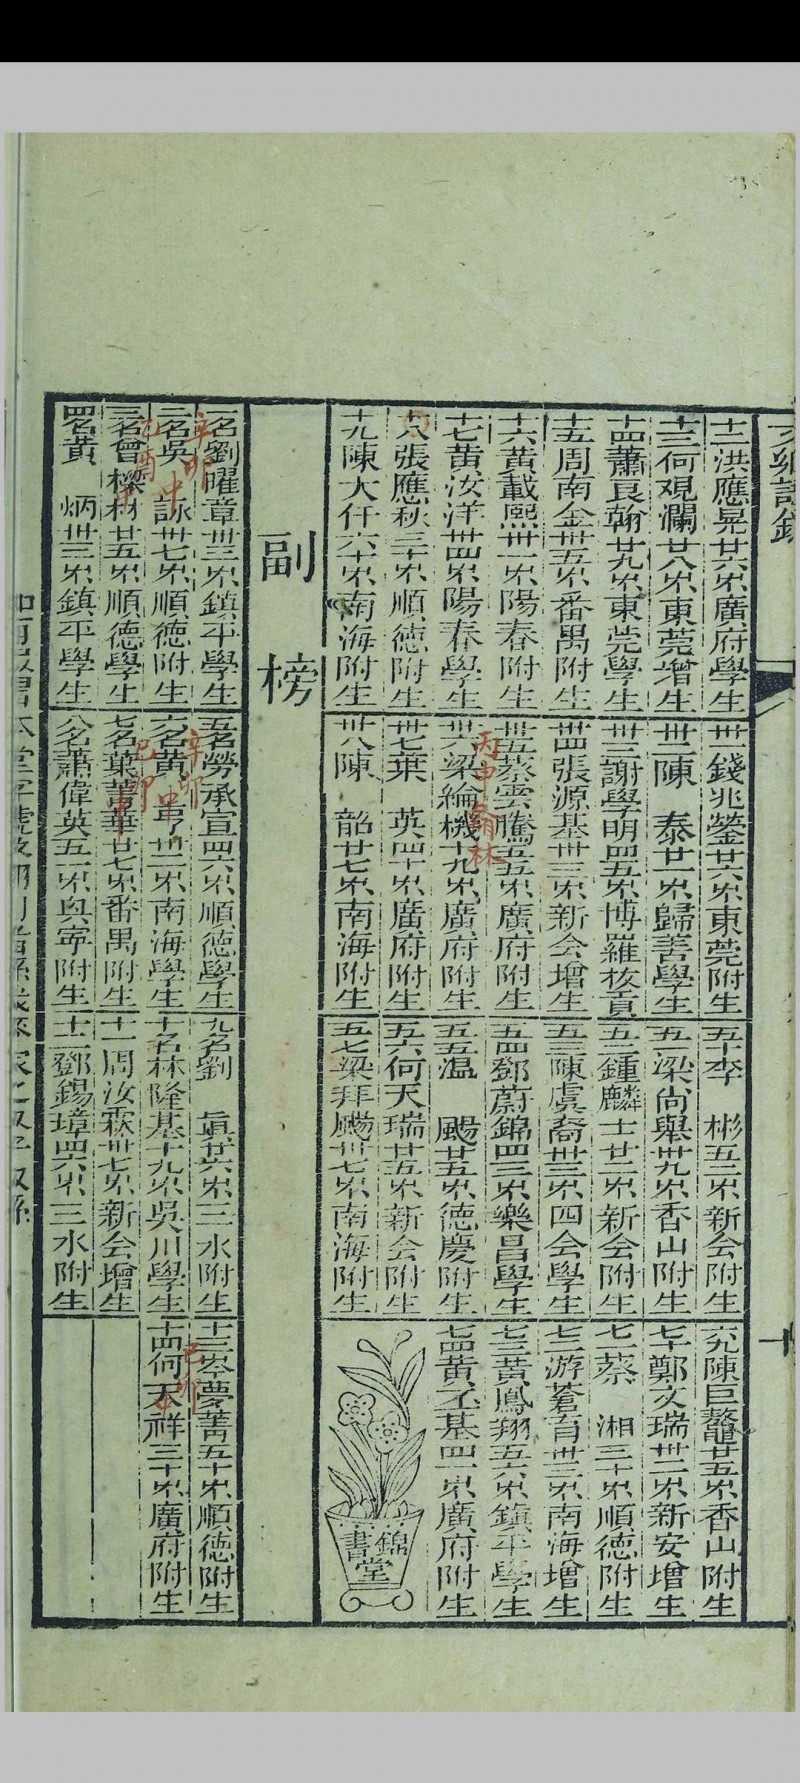 十二洪應晃廿六岁廣府學生
十三何观瀾廿八岁東莞增生
十四蕭良翰廿九岁東莞學生
十五周南金卅五岁番禺附生
十六黃載熙卅一岁陽春附生
十七黃汝洋卅四岁陽春學生
十八張應秋三十岁順徳附生
十九陳大仟六十岁南海附生
卅一錢兆鎣廿六岁東莞附生
卅二陳泰廿一岁歸善學生
卅三謝學明四五岁博羅拔貢
卅四張源基卅三岁新会增生
卅五蔡雲騰五五岁廣府附生
卅六梁綸機十九岁廣府附生
丙申翰林
卅七葉英四十岁廣府附生
卅八陳韶廿七岁南海附生
五十李彬五二岁新会附生
五一梁尚舉卅九岁香山附生
五二鍾麟士廿二岁新会附生
五三陳虞裔卅三岁四会學生
五四鄧蔚錦四三岁樂昌學生
五五溫颺廿五岁德慶附生
五六何天瑞廿五岁新会附生
五七梁拜颺卅七岁南海附生
六九陳巨鰲廿五岁香山附生
七十鄭文瑞卅二岁新安增生
七一蔡湘三十岁順徳附生
七二游蒼育卅三岁南海增生
七三黃鳳翔五六岁鎮平學生
七四黃丕基四一岁廣府附生
錦書堂
副榜
一名劉曜章卅三岁鎮平學生
辛卯中
二名吳詠卅七岁順徳附生
三名曾櫟材廿五岁順徳學生
四名黃炳卅三岁鎮平學生
五名勞承宣四六岁順徳學生
辛卯
六名黃卅一岁南海學生
七名葉蕚華廿七岁番禺附生
八名蕭偉英五一岁興寧附生
九名劉眞廿六岁三水附生
十名林隆基十九岁吳川學生
十一周汝霖卅七岁新会增生
十二鄧錫璋四六岁三水附生
十三岑夢菁五十岁順徳附生
十四何天祥三十岁廣府附生